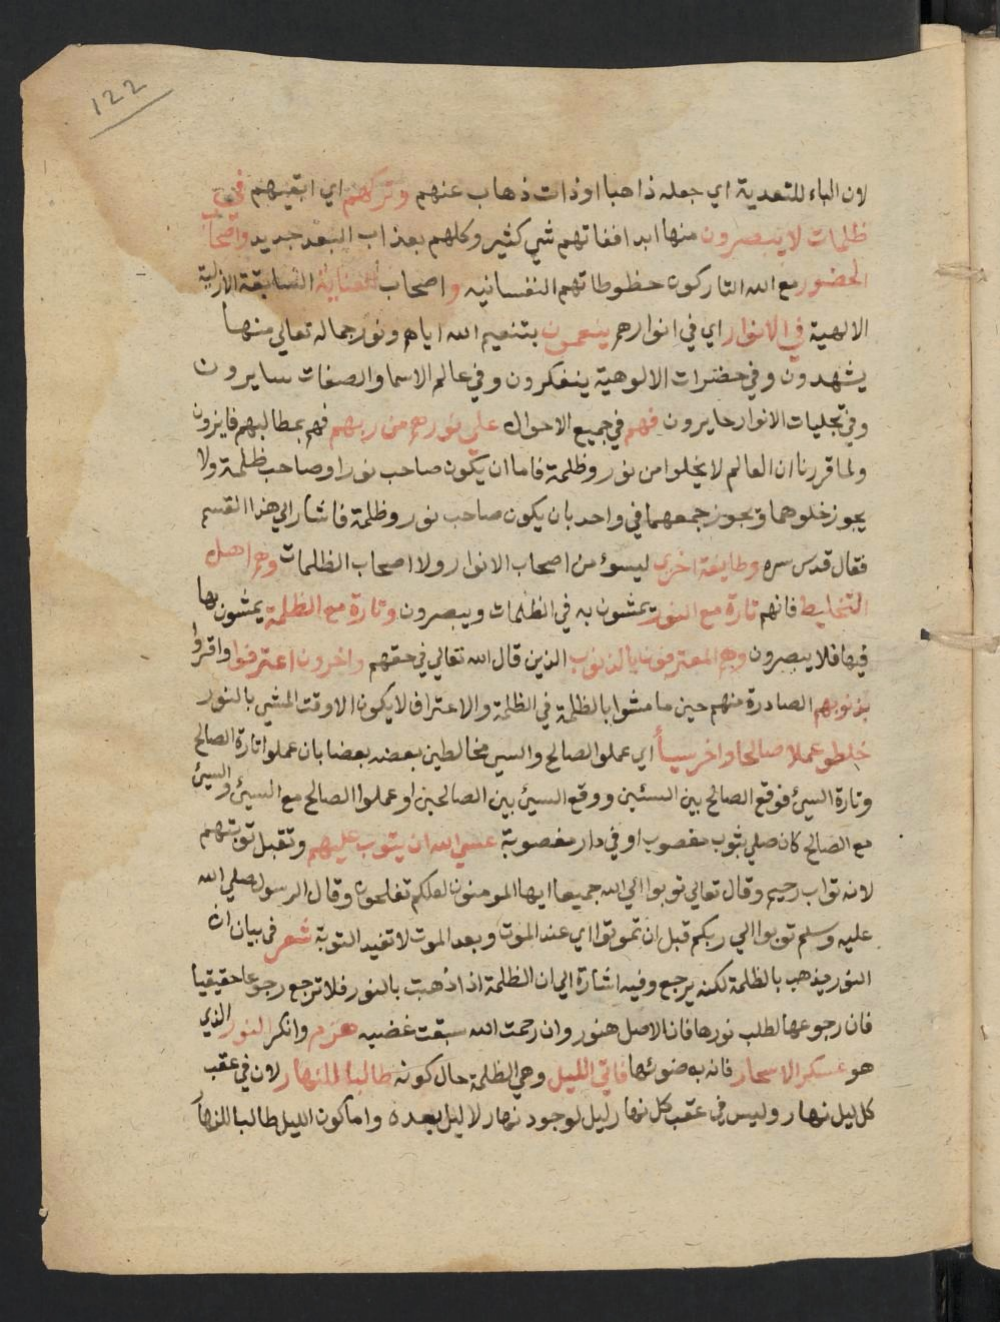 122
لان الباء للتعدية اي جعله ذاهبا او ذات ذهاب عنهم وتركهم اي ابقيهم في
ظلمات لا يبصرون منها ابدا ففاتهم شي كثير وكلهم بعذاب البعد جدير واصحاب
الحضور مع الله التاركون حظوظاتهم النفسانيه واصحاب العناية السابقة الازلية
الالهية في الانوار اي في انوارهم ينعمون بتنعيم الله اياهم ونور جماله تعالي منها
يشهدون وفي حضرات الالوهية يتفكرون وفي عالم الاسما والصفات سايرون
وفي تجليات الانوار حايرون فهم في جميع الاحوال علي نورهم من ربهم فهم بمطالبهم فايزون
ولما قررنا ان العالم لا يخلوا من نور وظلمة فاما ان يكون صاحب نور او صاحب ظلمة ولا
يجوز خلوهما ويجوز جمعهما في واحد بان يكون صاحب نور وظلمة فاشار الي هذا القسم
فقال قدس سره وطايفة اخري ليسوا من اصحاب الانوار ولا اصحاب الظلمات وهم اهل
التخليط فانهم تارة مع النور يمشون به في الظلمات ويبصرون وتارة مع الظلمة يمشون بها
فيها فلا يبصرون وهم المعترفون بالذنوب الذين قال الله تعالي في حقهم واخرون اعترفوا واقروا
بذنوبهم الصادرة منهم حين ما مشوا بالظلمة في الظلمة والاعتراف لا يكون الا وقت المشي بالنور
خلطو عملا صالحا واخر سيأ اي عملوا الصالح والسيئ مخالطين بعضه بعضا بان عملوا تارة الصالح
وتارة السيئ فوقع الصالح بين السئين ووقع السيئ بين الصالحين او عملوا الصالح مع السيئ والسيئ
مع الصالح كان صلي بثوب مغصوب او في دار مغصوبة عسي الله ان يتوب عليهم وتقبل توبتهم
لانه تواب رحيم وقال تعالي توبوا الي الله جميعا ايها المومنون لعلكم تفلحون وقال الرسول صلي الله
عليه وسلم توبوا الي ربكم قبل ان تموتوا اي عند الموت وبعد الموت لا تفيد التوبة شعر في بيان ان
النور يذهب بالظلمة لكنه يرجع وفيه اشارة الي ان الظلمة اذا ذهبت بالنور فلا ترجع رجوعا حقيقيا
فان رجوعها لطلب نورها فان الاصل هنور وان رحمت الله سبقت غضبه هزم وانكر النور الذي
هو عسكر الاسحار فانه به ضوئها فاتي الليل وهي الظلمة حال كونه طالبا للنهار لان في عقب
كل ليل نهار وليس في عقب كل نهار ليل لوجود نهار لا ليل بعده واما كون الليل طالبا للنهار